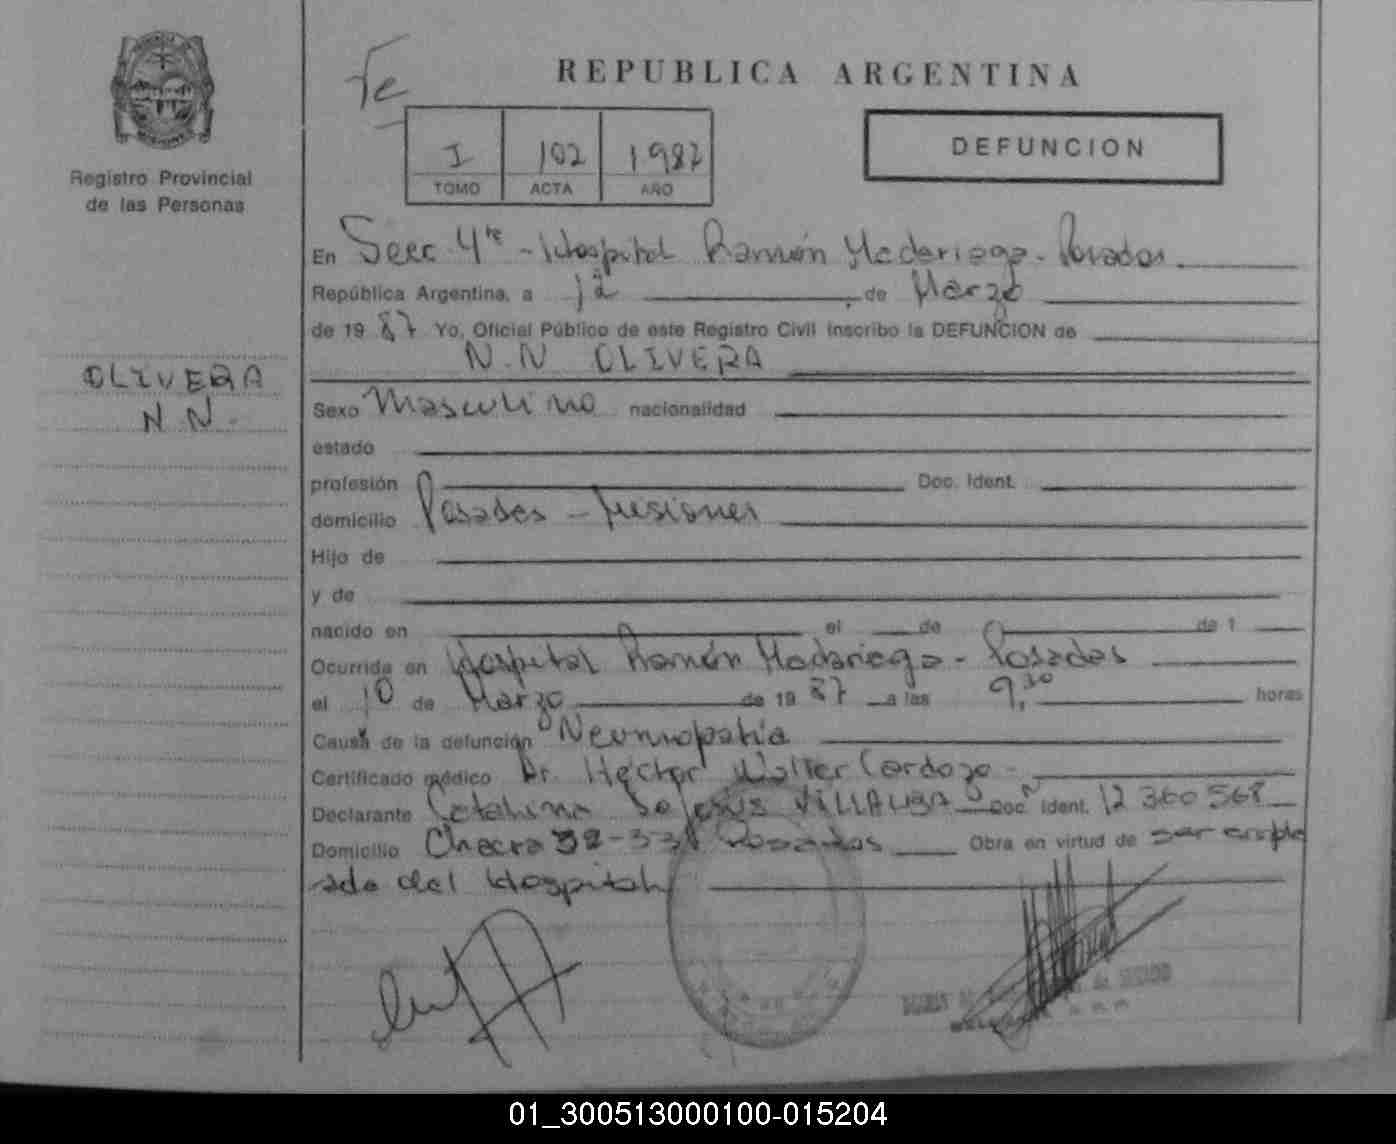 Registro Provincial
de las Personas
OLIVERA
N.N.
REPUBLICA ARGENTINA
I 102 1987
TOMO ACTA AÑO
DEFUNCION
En Secc 4ta - Hospital Ramón Madariaga - Posadas
República Argentina, a de Marzo
de 19 87 Yo, Oficial Público de este Registro Civil inscribo la DEFUNCION de
N.N OLIVERA
Sexo Masculino nacionalidad
estado
profesión Doc. Ident.
domicilio Posadas - Misiones
Hijo de
y de
nacido en el de de 1
Ocurrida en Hospital Ramón Madariaga - Posadas
el 10 de Marzo de 19 87 a las 9,30 horas
Causa de la defunción Neumopatia
Certificado médico Dr. Hector Walter Cardozo
Declarante Catalina De Jesus VILLALBA Doc. Ident. 12 360 568
Domicilio Chacra 32-33 Posadas Obra en virtud de ser emple
ada del Hospital
01_300513000100-015204